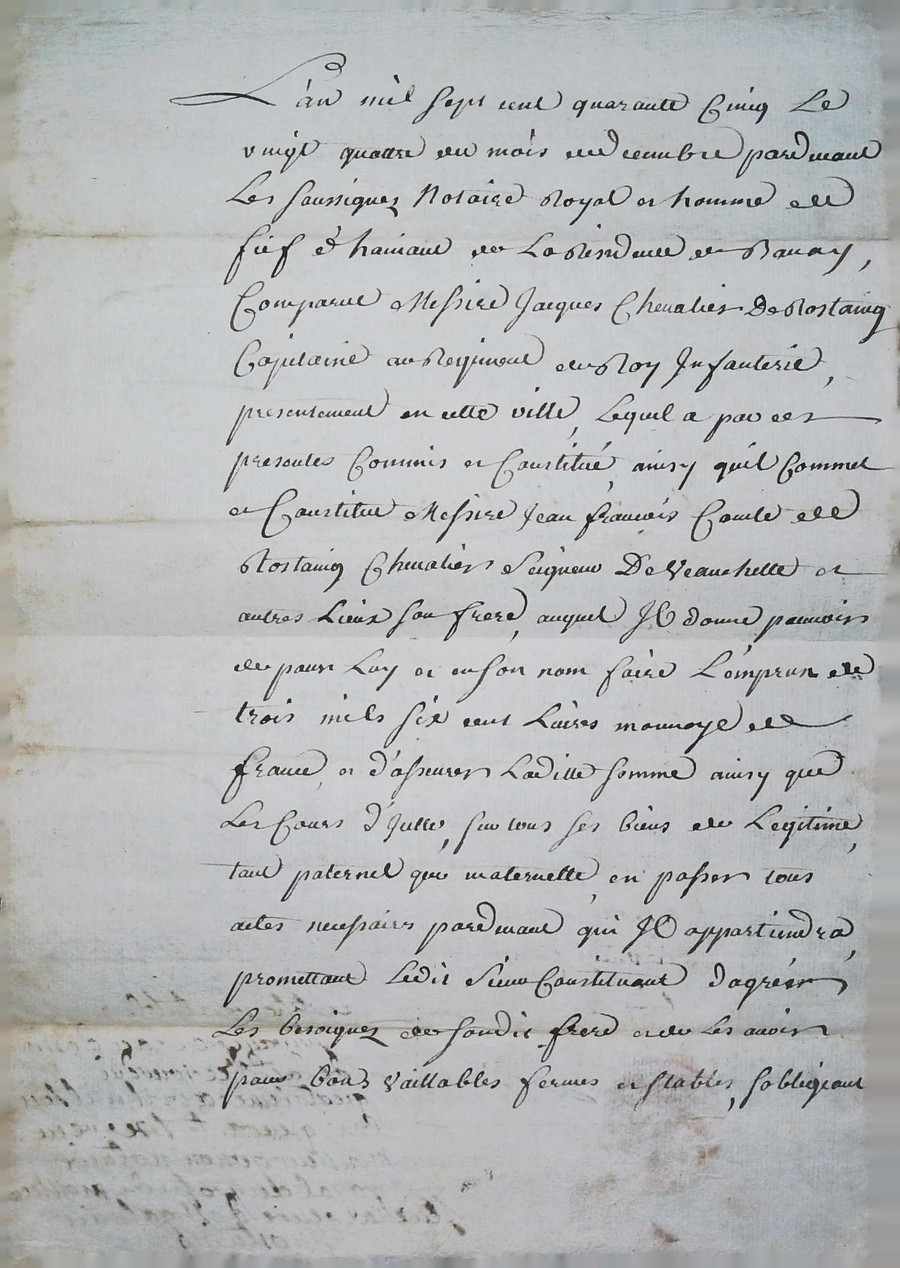 L'an mil sept cent quarante Cinq Le
vingt quattre du mois de decembre pardevant
Les soussignez Notaire Royal et homme de
fief d'hainaut de La Residence de Bavay,
Comparut Messire Jacques Chevalier De Rostaing
Capitaine au Regiment du Roy Infanterie,
presentement en cette ville, Lequel a par ces
presentes Commis et Constitué, ainsy quil Commet
et Constitue Messire Jean françois Comte de
Rostaing Chevalier Seigneur De Veauchette et
autres Lieux son frere, auquel Il donne pouvoir
de pour Luy et en son nom faire L'emprun de
trois mils six cent Livres monnoye de
france, et d'assurer Laditte somme ainsy que
Les Cours d'Icelle, sur tous ses biens de Legitime,
tant paternel que maternelle, en passer tous
actes necessairs pardevant qui Il appartiendra,
promettant Ledit Sieur Constituant d'agréer
Les besoignez de sondit frere et de Les avoir
pour bons vaillables fermes et stables, sobligeant